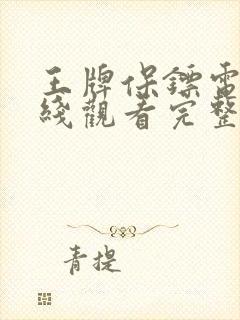 王牌保鏢電
綫觀看完整
青提